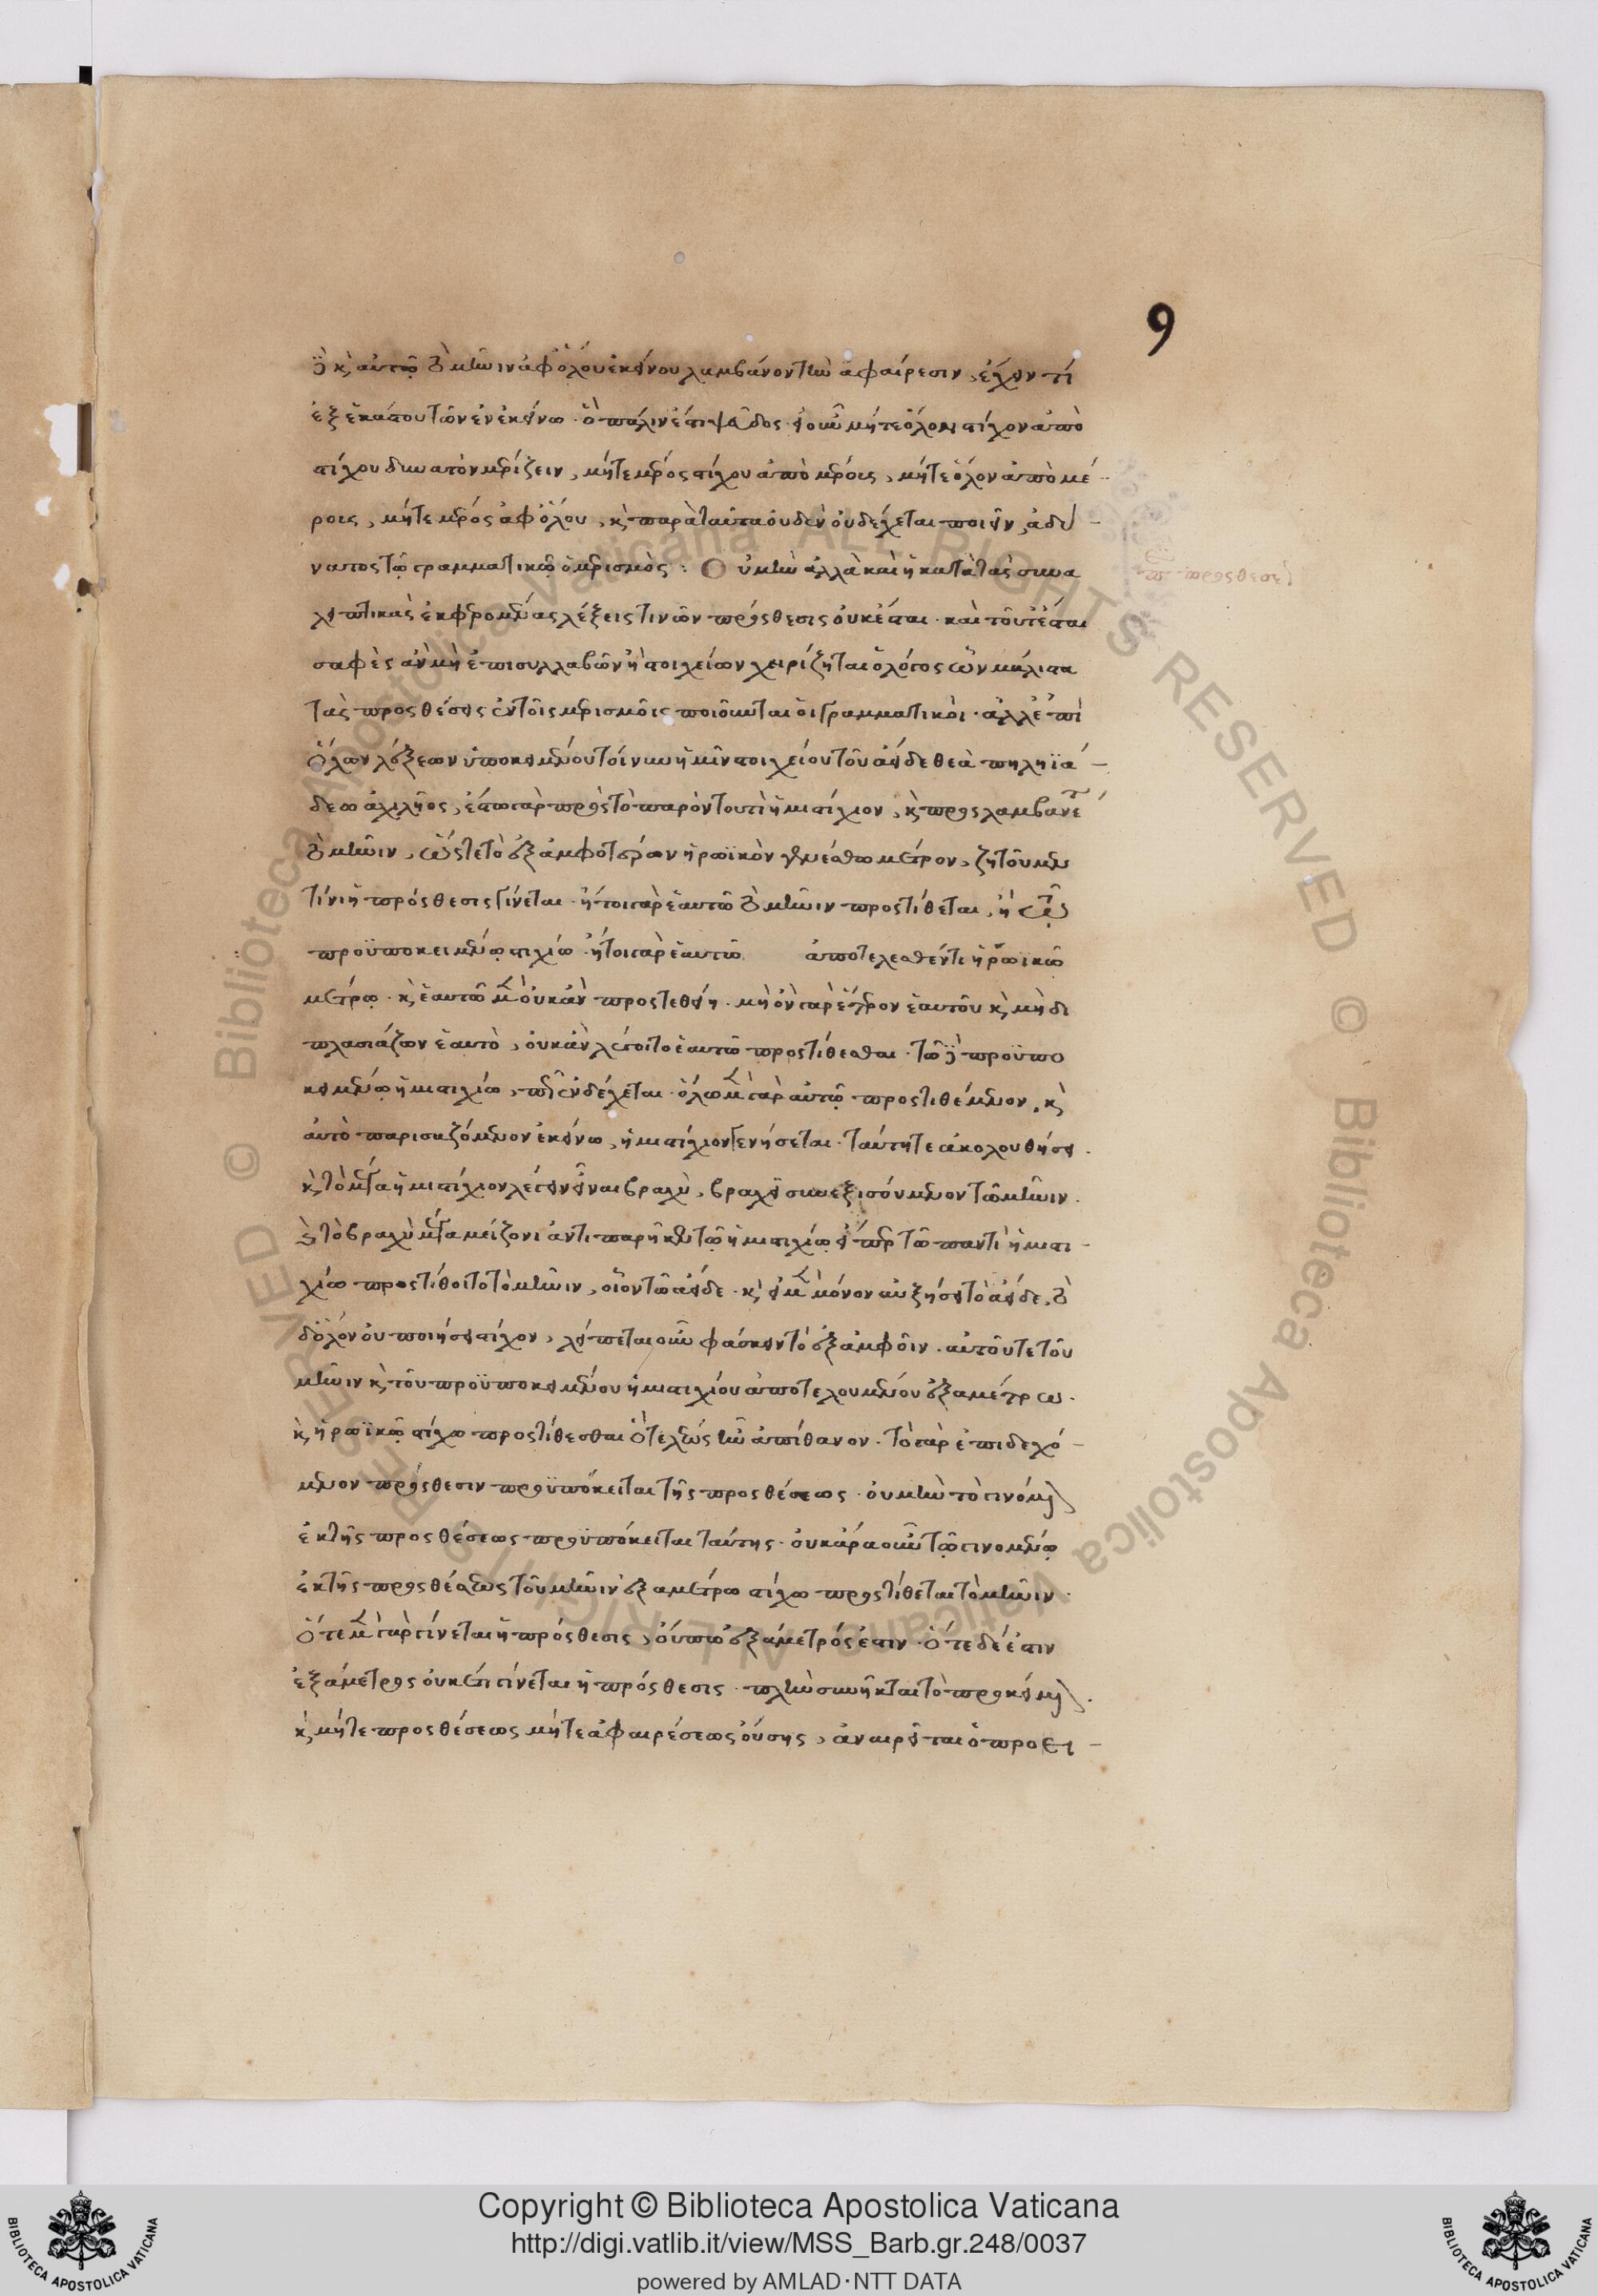 9
δὲ καὶ αὐτῷ τὸ μῆνιν ἀφ' ὅλου ἐκείνου λαμβάνον τὴν ἀφαίρεσιν, ἔχειν τι
ἐξ ἑκάστου τῶν ἐν ἐκείνῳ. ὃ πάλιν ἐστὶ ψεῦδος. εἰ οὖν μήτε ὅλον στίχον ἀπὸ
στίχου δυνατὸν μερίζειν, μήτε μέρος στίχου ἀπὸ μέρους, μήτε ὅλον ἀπὸ μέ-
ρους, μήτε μέρος ἀφ' ὅλου, καὶ παρὰ ταῦτα οὐδὲν οὐ δέχεται ποιεῖν, ἀδύ-
νατος τῷ γραμματικῷ ὁ μερισμός: Οὐ μὴν ἀλλὰ καὶ ἡ κατὰ τὰς συνα
π προσθέσε
λειπτικὰς ἐκφερομένας λέξεις τινῶν πρόσθεσις οὐκ ἔσται. καὶ τοῦτ' ἔσται
σαφὲς ἂν μὴ ἐπὶ συλλαβῶν ἢ στοιχείων χειρίζηται ὁ λόγος ὧν μάλιστα
τὰς προσθέσεις ἐν τοῖς μερισμοῖς ποιοῦνται οἱ γραμματικοὶ. ἀλλ' ἐπὶ
ὅλων λέξεων ὑποκειμένου τοίνυν ἡμῖν στοιχείου τοῦ ἄειδε θεὰ πηληϊά-
δεω ἀχιλῆος, ἔστω γὰρ πρὸς τὸ παρὸν τουτὶ ἡμιστίχιον, καὶ προσλαμβανέτω
τὸ μῆνιν, ὥστε τὸ ἐξ ἀμφοτέρων ἡρωϊκὸν γενέσθαι μέτρον, ζητοῦμεν
τίνι ἡ πρόσθεσις γίνεται. ἤτοι γὰρ ἑαυτῷ τὸ μῆνιν προστίθεται, ἢ τῷ
προϋποκειμένῳ στιχίῳ ἤτοι γὰρ ἑαυτῷ ἀποτελεσθέντι ἡρωικῷ
μέτρῳ. καὶ ἑαυτῷ μὲν οὐκ ἂν προστεθείη. μὴ ὂν γὰρ ἕτερον ἑαυτοῦ καὶ μὴ δι
πλασιάζων ἑαυτὸ, οὐκ ἂν λέγοιτο ἑαυτῷ προστίθεσθαι. τῷ δὲ προϋπο
κειμένῳ ἡμιστιχίῳ, πῶς ἐνδέχεται. ὅλῳ μὲν γὰρ αὐτῷ προστιθέμενον, καὶ
αὐτὸ παρισαζόμενον ἐκείνῳ, ἡμιστίχιον γενήσεται. ταύτῃ τε ἀκολουθήσει.
καὶ τὸ μέγα ἡμιστίχιον λέγειν εἶναι βραχὺ, βραχεῖ συνεξισούμενον τῷ μῆνιν.
καὶ τὸ βραχὺ μέγα μείζονι ἀντιπαρῆκον τῷ ἡμιστιχίῳ εἴπερ τῷ παντὶ ἡμιστι-
χίῳ προστίθοιτο τὸ μῆνιν, οἷον τῷ ἄειδε. καὶ εἰ μὲν μόνον αὐξήσει τὸ ἄειδε, τὸ
δ' ὅλον οὐ ποιήσει στίχον, λείπεται οὖν φάσκειν τὸ ἐξ ἀμφοῖν. αὐτοῦ τε τοῦ
μῆνιν καὶ τοῦ προϋποκειμένου ἡμιστιχίου ἀποτελουμένου ἑξαμέτρω.
καὶ ἡρωϊκῷ στίχῳ προστίθεσθαι ὃ τελέως ἦν ἀπίθανον. τὸ γὰρ ἐπιδεχό-
μενον πρόσθεσιν προϋπόκειται τῆς προσθέσεως. οὐ μὴν τὸ γινόμενον
ἐκ τῆς προσθέσεως προϋπόκειται ταύτης. οὐκ ἄρα οὖν τῷ γινομένῳ
ἐκ τῆς προσθέσεως τοῦ μῆνιν ἑξαμέτρῳ στίχῳ προστίθεται τὸ μῆνιν.
ὅτε μὲν γὰρ γίνεται ἡ πρόσθεσις, οὔπω ἑξάμετρός ἐστιν. ὅτε δὲ ἔστιν
ἑξάμετρος οὐκέτι γίνεται ἡ πρόσθεσις. πλὴν συνῆκται τὸ προκείμενον.
καὶ μήτε προσθέσεως μήτε ἀφαιρέσεως οὔσης, ἀναιρεῖται ὁ προει-
Copyright © Biblioteca Apostolica Vaticana
http://digi.vatlib.it/view/MSS_Barb.gr.248/0037
powered by AMLAD·NTT DATA